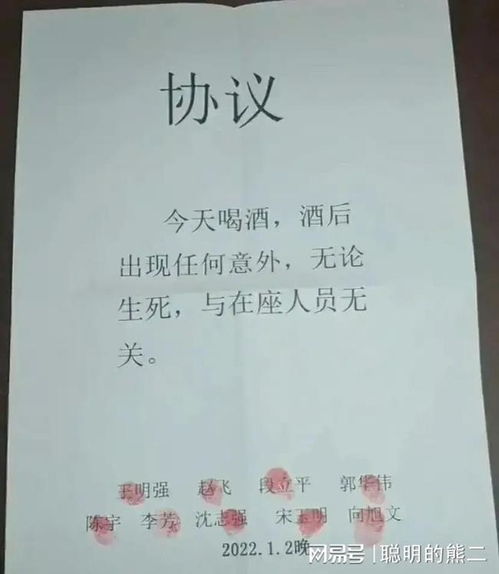 协议
今天喝酒，酒后
出现任何意外，无论
生死，与在座人员无
关。
王明强 赵飞 段立平 郭华伟
陈宇 李芳 沈志强 宋玉明 向旭文
2022.1.2晚
网易号 | 聪明的熊二